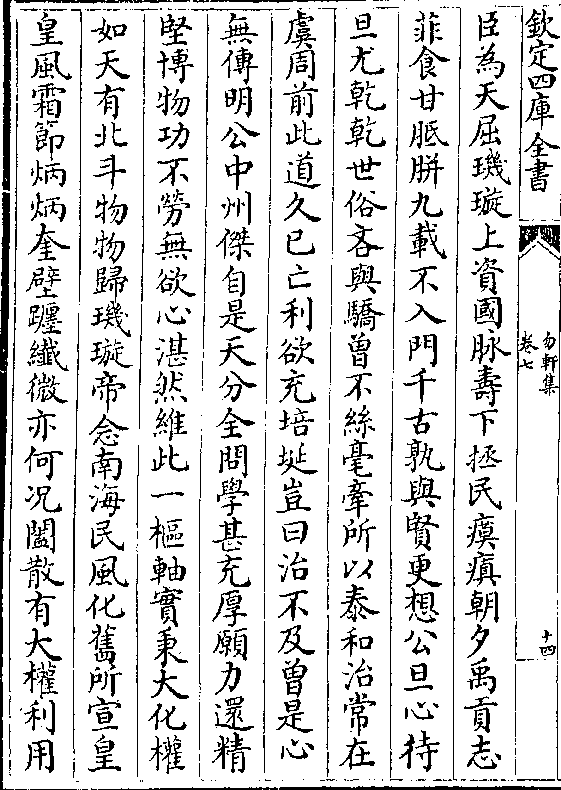 欽定四庫全書
勿軒集
卷七
十四
臣為天屈璣璇上資國脉壽下拯民瘼瘨朝夕禹貢志
菲食甘胝胼九載不入門千古孰與賢更想公旦心待
旦尤乾乾世俗吝與驕曾不絲毫牽所以泰和治常在
虞周前此道久已亡利欲充培埏豈曰治不及曽是心
無傳明公中州傑自是天分全問學甚充厚願力還精
堅博物功不勞無欲心湛然維此一樞軸實秉大化權
如天有北斗物物歸璣璇帝念南海民風化舊所宣皇
皇風霜節炳炳奎壁躔纖微亦何况闔散有大權利用